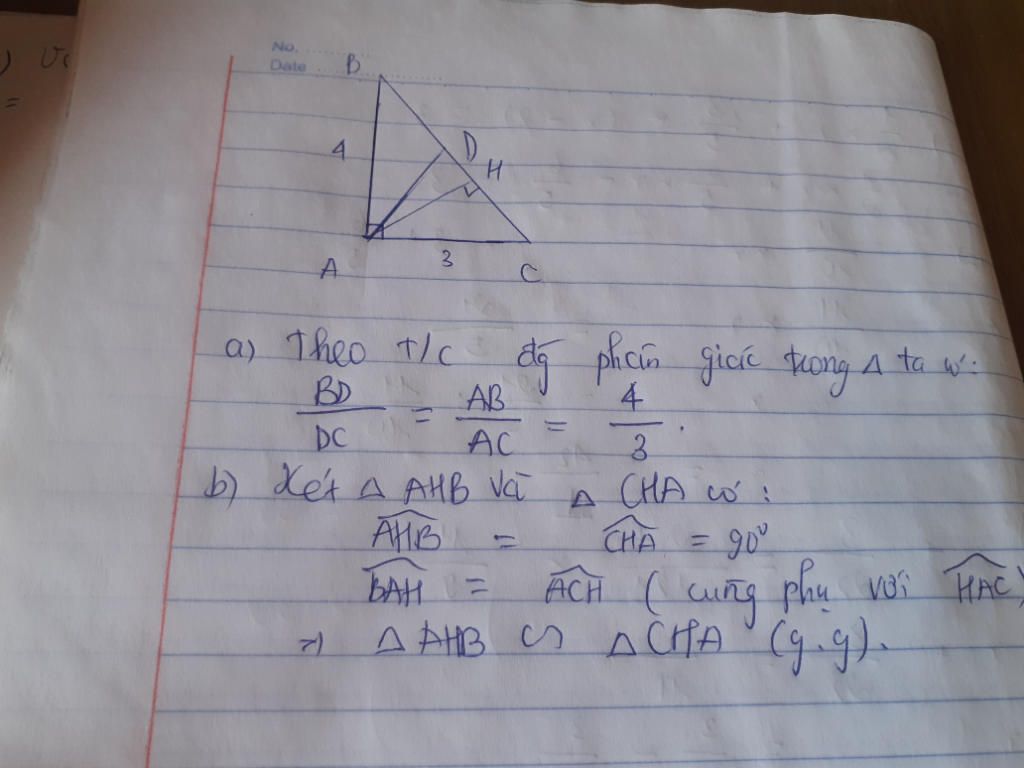 No.
Date
B
4
D
H
A
3
C
a) Theo t/c đg phân giác trong Δ ta có:
BD/DC = AB/AC = 4/3.
b) Xét Δ AHB và Δ CHA có:
\widehat{AHB} = \widehat{CHA} = 90⁰
\widehat{BAH} = \widehat{ACH} (cùng phụ với \widehat{HAC})
=> Δ AHB ∽ Δ CHA (g.g).